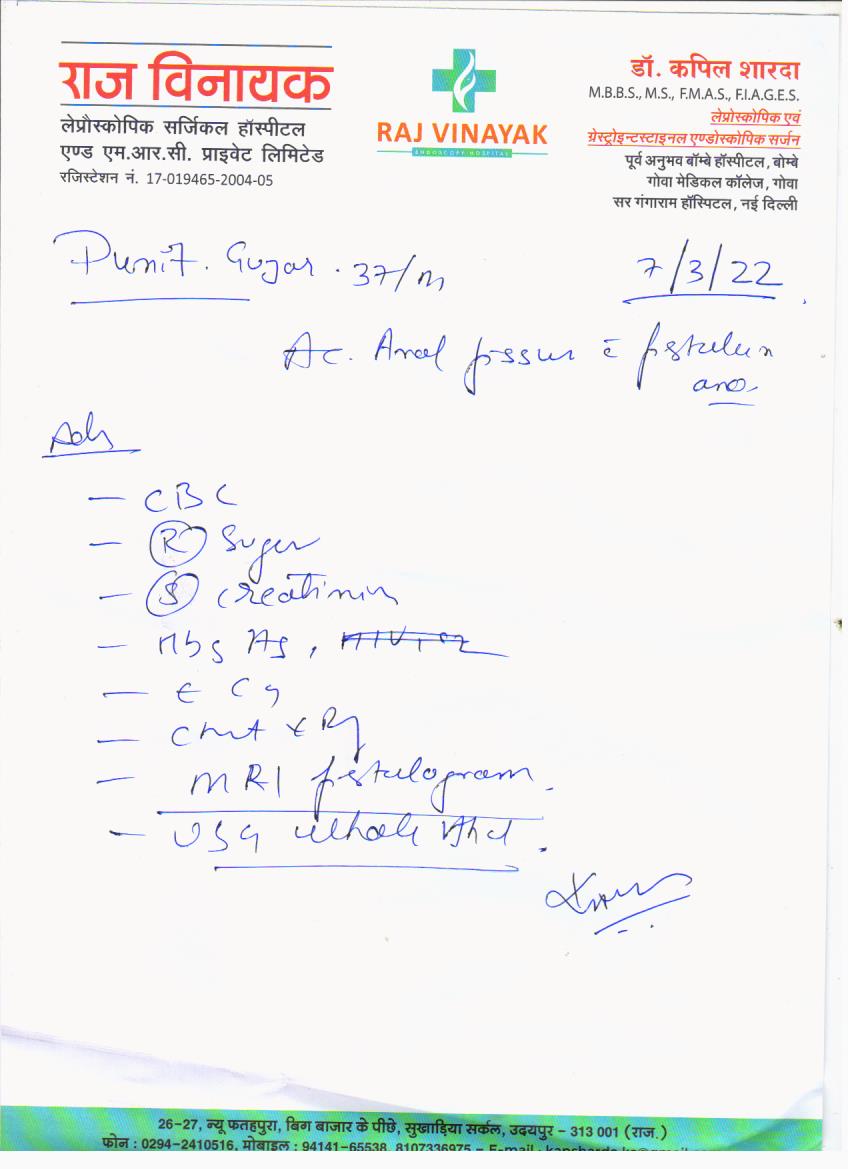 राज विनायक
लेप्रौस्कोपिक सर्जिकल हॉस्पीटल
एण्ड एम.आर.सी. प्राइवेट लिमिटेड
रजिस्टेशन नं. 17-019465-2004-05
RAJ VINAYAK
ENDOSCOPY HOSPITAL
डॉ. कपिल शारदा
M.B.B.S., M.S., F.M.A.S., F.I.A.G.E.S.
लेप्रोस्कोपिक एवं
ग्रेस्ट्रोइन्टस्टाइनल एण्डोस्कोपिक सर्जन
पूर्व अनुभव बॉम्बे हॉस्पीटल, बोम्बे
गोवा मेडिकल कॉलेज, गोवा
सर गंगाराम हॉस्पिटल, नई दिल्ली
Punit. Gujar. 37/M
7/3/22
Ac. Anal fissur c̄ fistula in
ano
Adv
- CBC
- (R) Suger
- (S) creatinin
- Hbs Ag,
- ECG
- Chest x Ray
- MRI fistulogram.
- USG whole Abd.
26-27, न्यू फतहपुरा, बिग बाजार के पीछे, सुखाड़िया सर्कल, उदयपुर - 313 001 (राज.)
फोन : 0294-2410516, मोबाइल : 94141-65538, 8107336975 - E-mail :